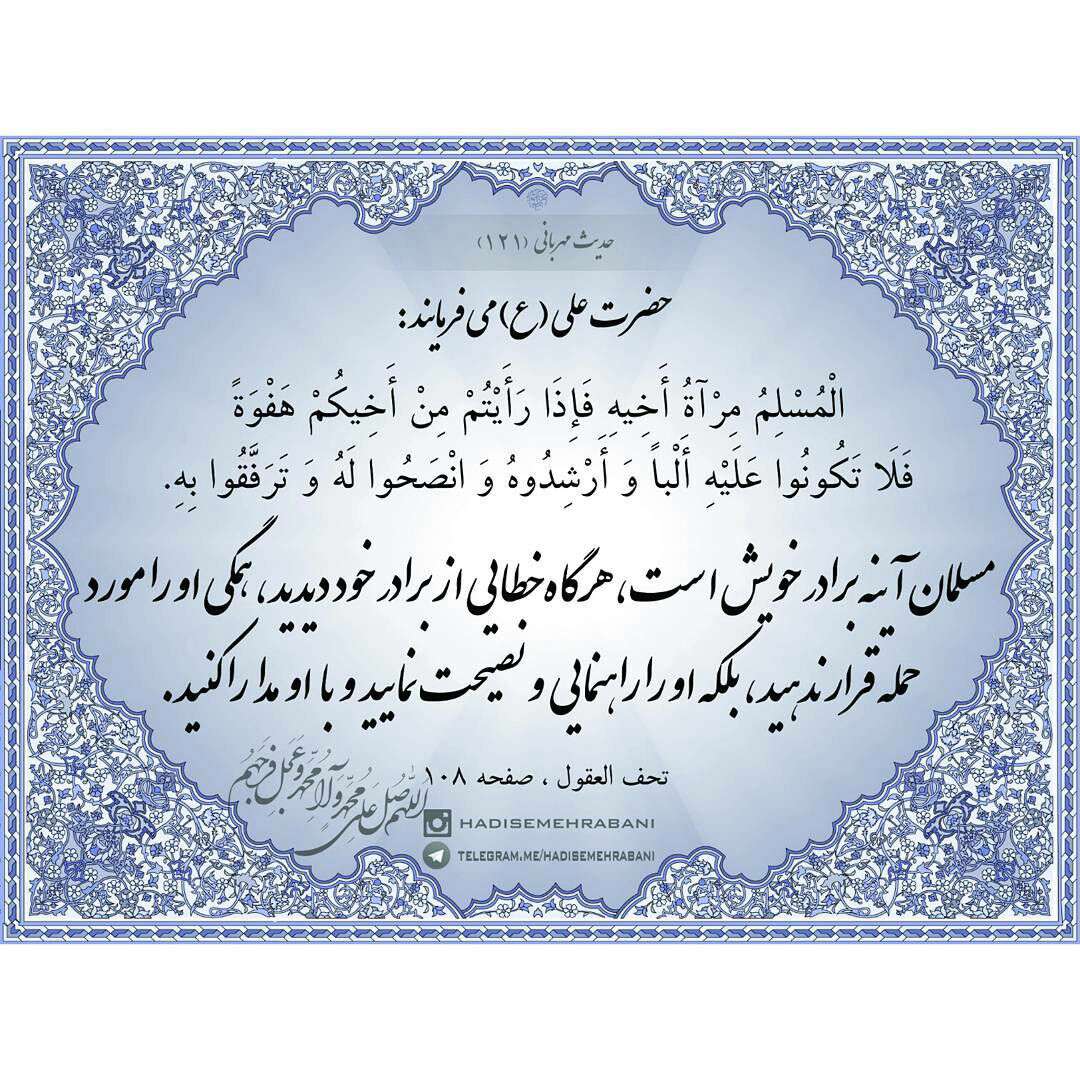 حدیث مهربانی (۱۲۱)
حضرت علی (ع) می فرمایند:
الْمُسْلِمُ مِرْآةُ أَخِیهِ فَإِذَا رَأَیْتُمْ مِنْ أَخِیكُمْ هَفْوَةً
فَلَا تَكُونُوا عَلَیْهِ أَلْباً وَ أَرْشِدُوهُ وَ انْصَحُوا لَهُ وَ تَرَفَّقُوا بِهِ.
مسلمان آینه برادر خویش است، هرگاه خطایی از برادر خود دیدید، همگی او را مورد
حمله قرار ندهید، بلکه او را راهنمایی و نصیحت نمایید و با او مدارا کنید.
تحف العقول ، صفحه ۱۰۸
اللهم صل علی محمد و آل محمد و عجل فرجهم
HADISEMEHRABANI
TELEGRAM.ME/HADISEMEHRABANI